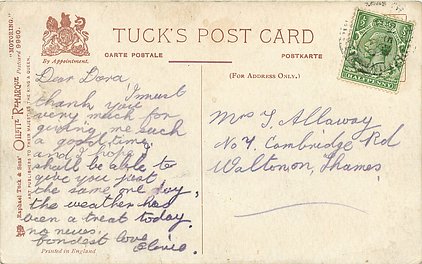 "MOTORING."
Postcard 9950.
Raphael Tuck & Sons' OILETTE REMARQUE
ART PUBLISHERS TO THEIR MAJESTIES THE KING & QUEEN.
By Appointment.
TUCK'S POST CARD
CARTE POSTALE
POSTKARTE
(FOR ADDRESS ONLY.)
HALFPENNY
Dear Dora
I must
thank you
very much for
giving me such
a good time,
and I hope
shall be able to
give you just
the same one day,
the weather has
been a treat today.
no news.
fondest love
Elsie.
Printed in England
Mrs T Allaway
No 4 Cambridge Rd
Walton on Thames.